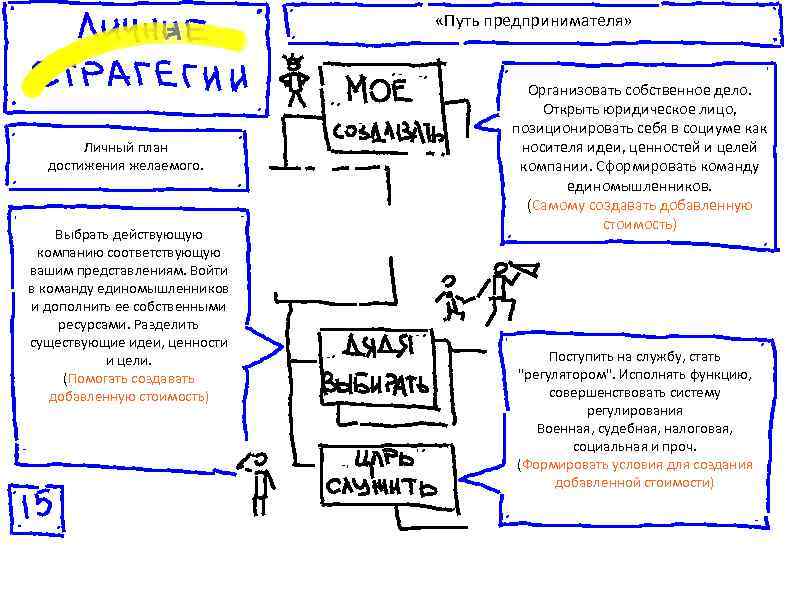 ЛИЧНЫЕ
СТРАТЕГИИ
«Путь предпринимателя»
Личный план
достижения желаемого.
МОЕ
СОЗДАВАТЬ
Организовать собственное дело.
Открыть юридическое лицо,
позиционировать себя в социуме как
носителя идеи, ценностей и целей
компании. Сформировать команду
единомышленников.
(Самому создавать добавленную
стоимость)
Выбрать действующую
компанию соответствующую
вашим представлениям. Войти
в команду единомышленников
и дополнить ее собственными
ресурсами. Разделить
существующие идеи, ценности
и цели.
(Помогать создавать
добавленную стоимость)
ДЯДЯ
ВЫБИРАТЬ
ЦАРЬ
СЛУЖИТЬ
Поступить на службу, стать
"регулятором". Исполнять функцию,
совершенствовать систему
регулирования
Военная, судебная, налоговая,
социальная и проч.
(Формировать условия для создания
добавленной стоимости)
15